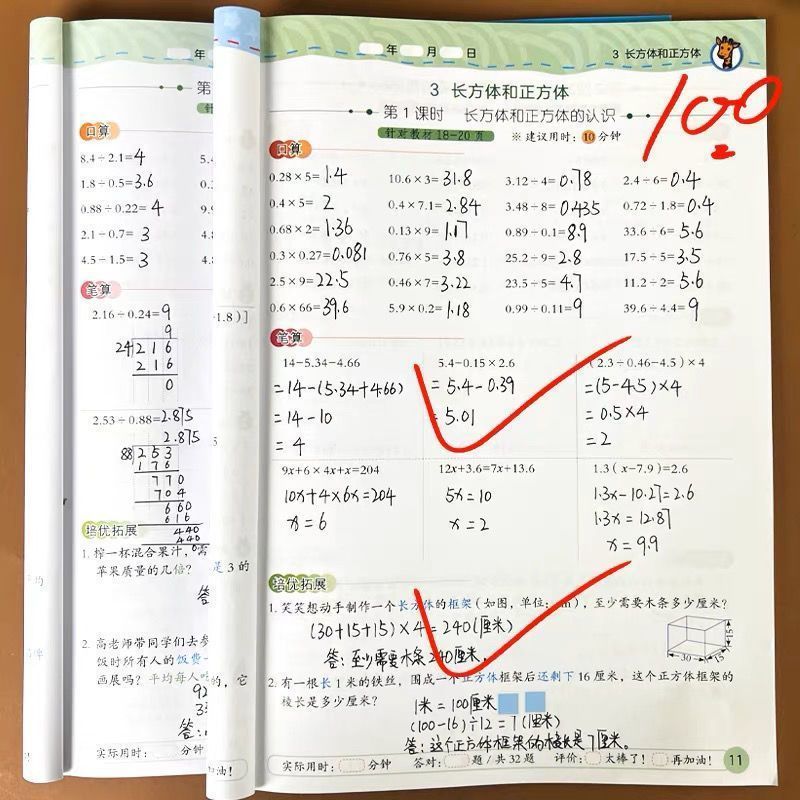 年
第
针
口算
8.4÷2.1=4
1.8÷0.5=3.6
0.88÷0.22=4
2.1÷0.7=3
4.5÷1.5=3
笔算
2.16÷0.24=9
9
24 216
216
0
2.53÷0.88=2.875
2.875
88 253
176
770
704
660
616
440
440
培优拓展
1. 榨一杯混合果汁，需
苹果质量的几倍？
2. 高老师带同学们去参
饭时所有人的饭费
画展吗？平均每人
实际用时： 分钟
5.4
4.8
4.8
-1.8)]
是3的
的，它
加油！
年 月 日
3 长方体和正方体
3 长方体和正方体
第1课时 长方体和正方体的认识
针对教材18-20页 ※建议用时：10分钟
100
口算
0.28×5=1.4 10.6×3=31.8 3.12÷4=0.78 2.4÷6=0.4
0.4×5=2 0.4×7.1=2.84 3.48÷8=0.435 0.72÷1.8=0.4
0.68×2=1.36 0.13×9=1.17 0.89÷0.1=8.9 33.6÷6=5.6
0.3×0.27=0.081 0.76×5=3.8 25.2÷9=2.8 17.5÷5=3.5
2.5×9=22.5 0.46×7=3.22 23.5÷5=4.7 11.2÷2=5.6
0.6×66=39.6 5.9×0.2=1.18 0.99÷0.11=9 39.6÷4.4=9
笔算
14-5.34-4.66 5.4-0.15×2.6 (2.3÷0.46-4.5)×4
=14-(5.34+4.66) =5.4-0.39 =(5-4.5)×4
=14-10 =5.01 =0.5×4
=4 =2
9x+6×4x+x=204 12x+3.6=7x+13.6 1.3(x-7.9)=2.6
10x+4×6x=204 5x=10 1.3x-10.27=2.6
x=6 x=2 1.3x=12.87
x=9.9
培优拓展
1. 笑笑想动手制作一个长方体的框架（如图，单位：cm），至少需要木条多少厘米？
(30+15+15)×4=240(厘米)
答：至少需要木条240厘米。
30 15 15
2. 有一根长1米的铁丝，围成一个正方体框架后还剩下16厘米，这个正方体框架的
棱长是多少厘米？
1米=100厘米
(100-16)÷12=7(厘米)
答：这个正方体框架的棱长是7厘米。
实际用时： 分钟 答对： 题/共32题 评价： 太棒了！ 再加油！
11